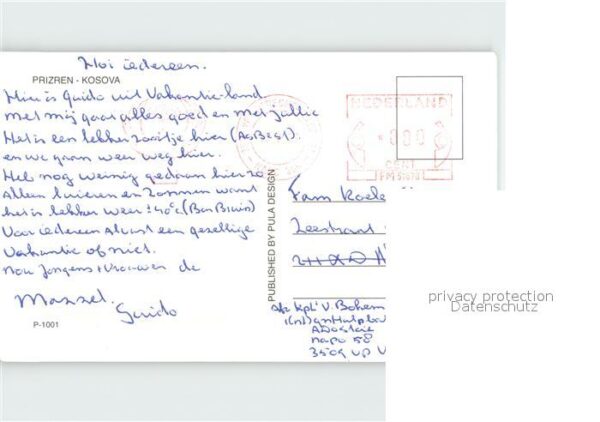 Hoi iedereen.
PRIZREN - KOSOVA
Hier is Guido uit Vakantie-land
met mij gaat alles goed en met jullie
Het is een lekker zooitje hier (AsBest).
en we gaan weer weg hier.
Heb nog weinig gedaan hier zo
Alleen luieren en zonnen want
het is lekker weer ± 40°c (Ben Bruin)
Voor iedereen Alvast een gezellige
Vakantie of niet.
Nou Jongens + Vrouwen de
Mazzel.
Guido
P-1001
PUBLISHED BY PULA DESIGN
NEDERLAND
000
CENT
FM
Fam
Zeestraat
Afz Kpl' V. Bohem
1(NL)
napo 58
3509 VP
privacy protection
Datenschutz